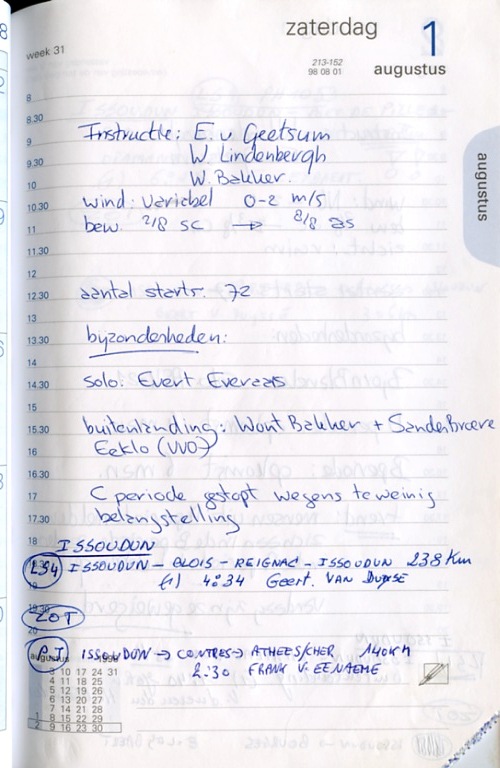 zaterdag 1
week 31
213-152
98 08 01
augustus
augustus
8
8.30
9
Instructie: E. v Geetsum
9.30
W. Lindenbergh
10
W. Bakker.
10.30
wind: varicbel 0-2 m/s
11
bew. 2/8 sc → 8/8 as
11.30
12
12.30
aantal starts: 72
13
13.30
byzonderheden:
14
14.30
solo: Evert Everaas
15
15.30
buitenlanding: Wout Bakker + Sander Broere
16
Eeklo (VVO)
16.30
17
C periode gestopt wegens te weinig
17.30
belangstelling
18
ISSOUDUN
LS4 ISSOUDUN - BLOIS - REIGNAC - ISSOUDUN 238 Km
(1) 4:34 Geert. VAN
19.30
20
ISSOUDUN → CONTRES → ATHEES/CHER 140 KM
2:30 FRANK V. EENAEME
augustus 1998
3 10 17 24 31
4 11 18 25
5 12 19 26
6 13 20 27
7 14 21 28
1 8 15 22 29
2 9 16 23 30